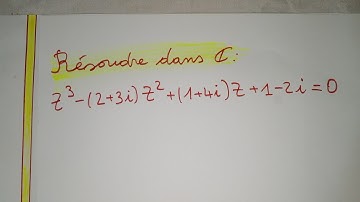 Résoudre dans ℂ:
z³-(2+3i)z²+(1+4i)z+1-2i=0